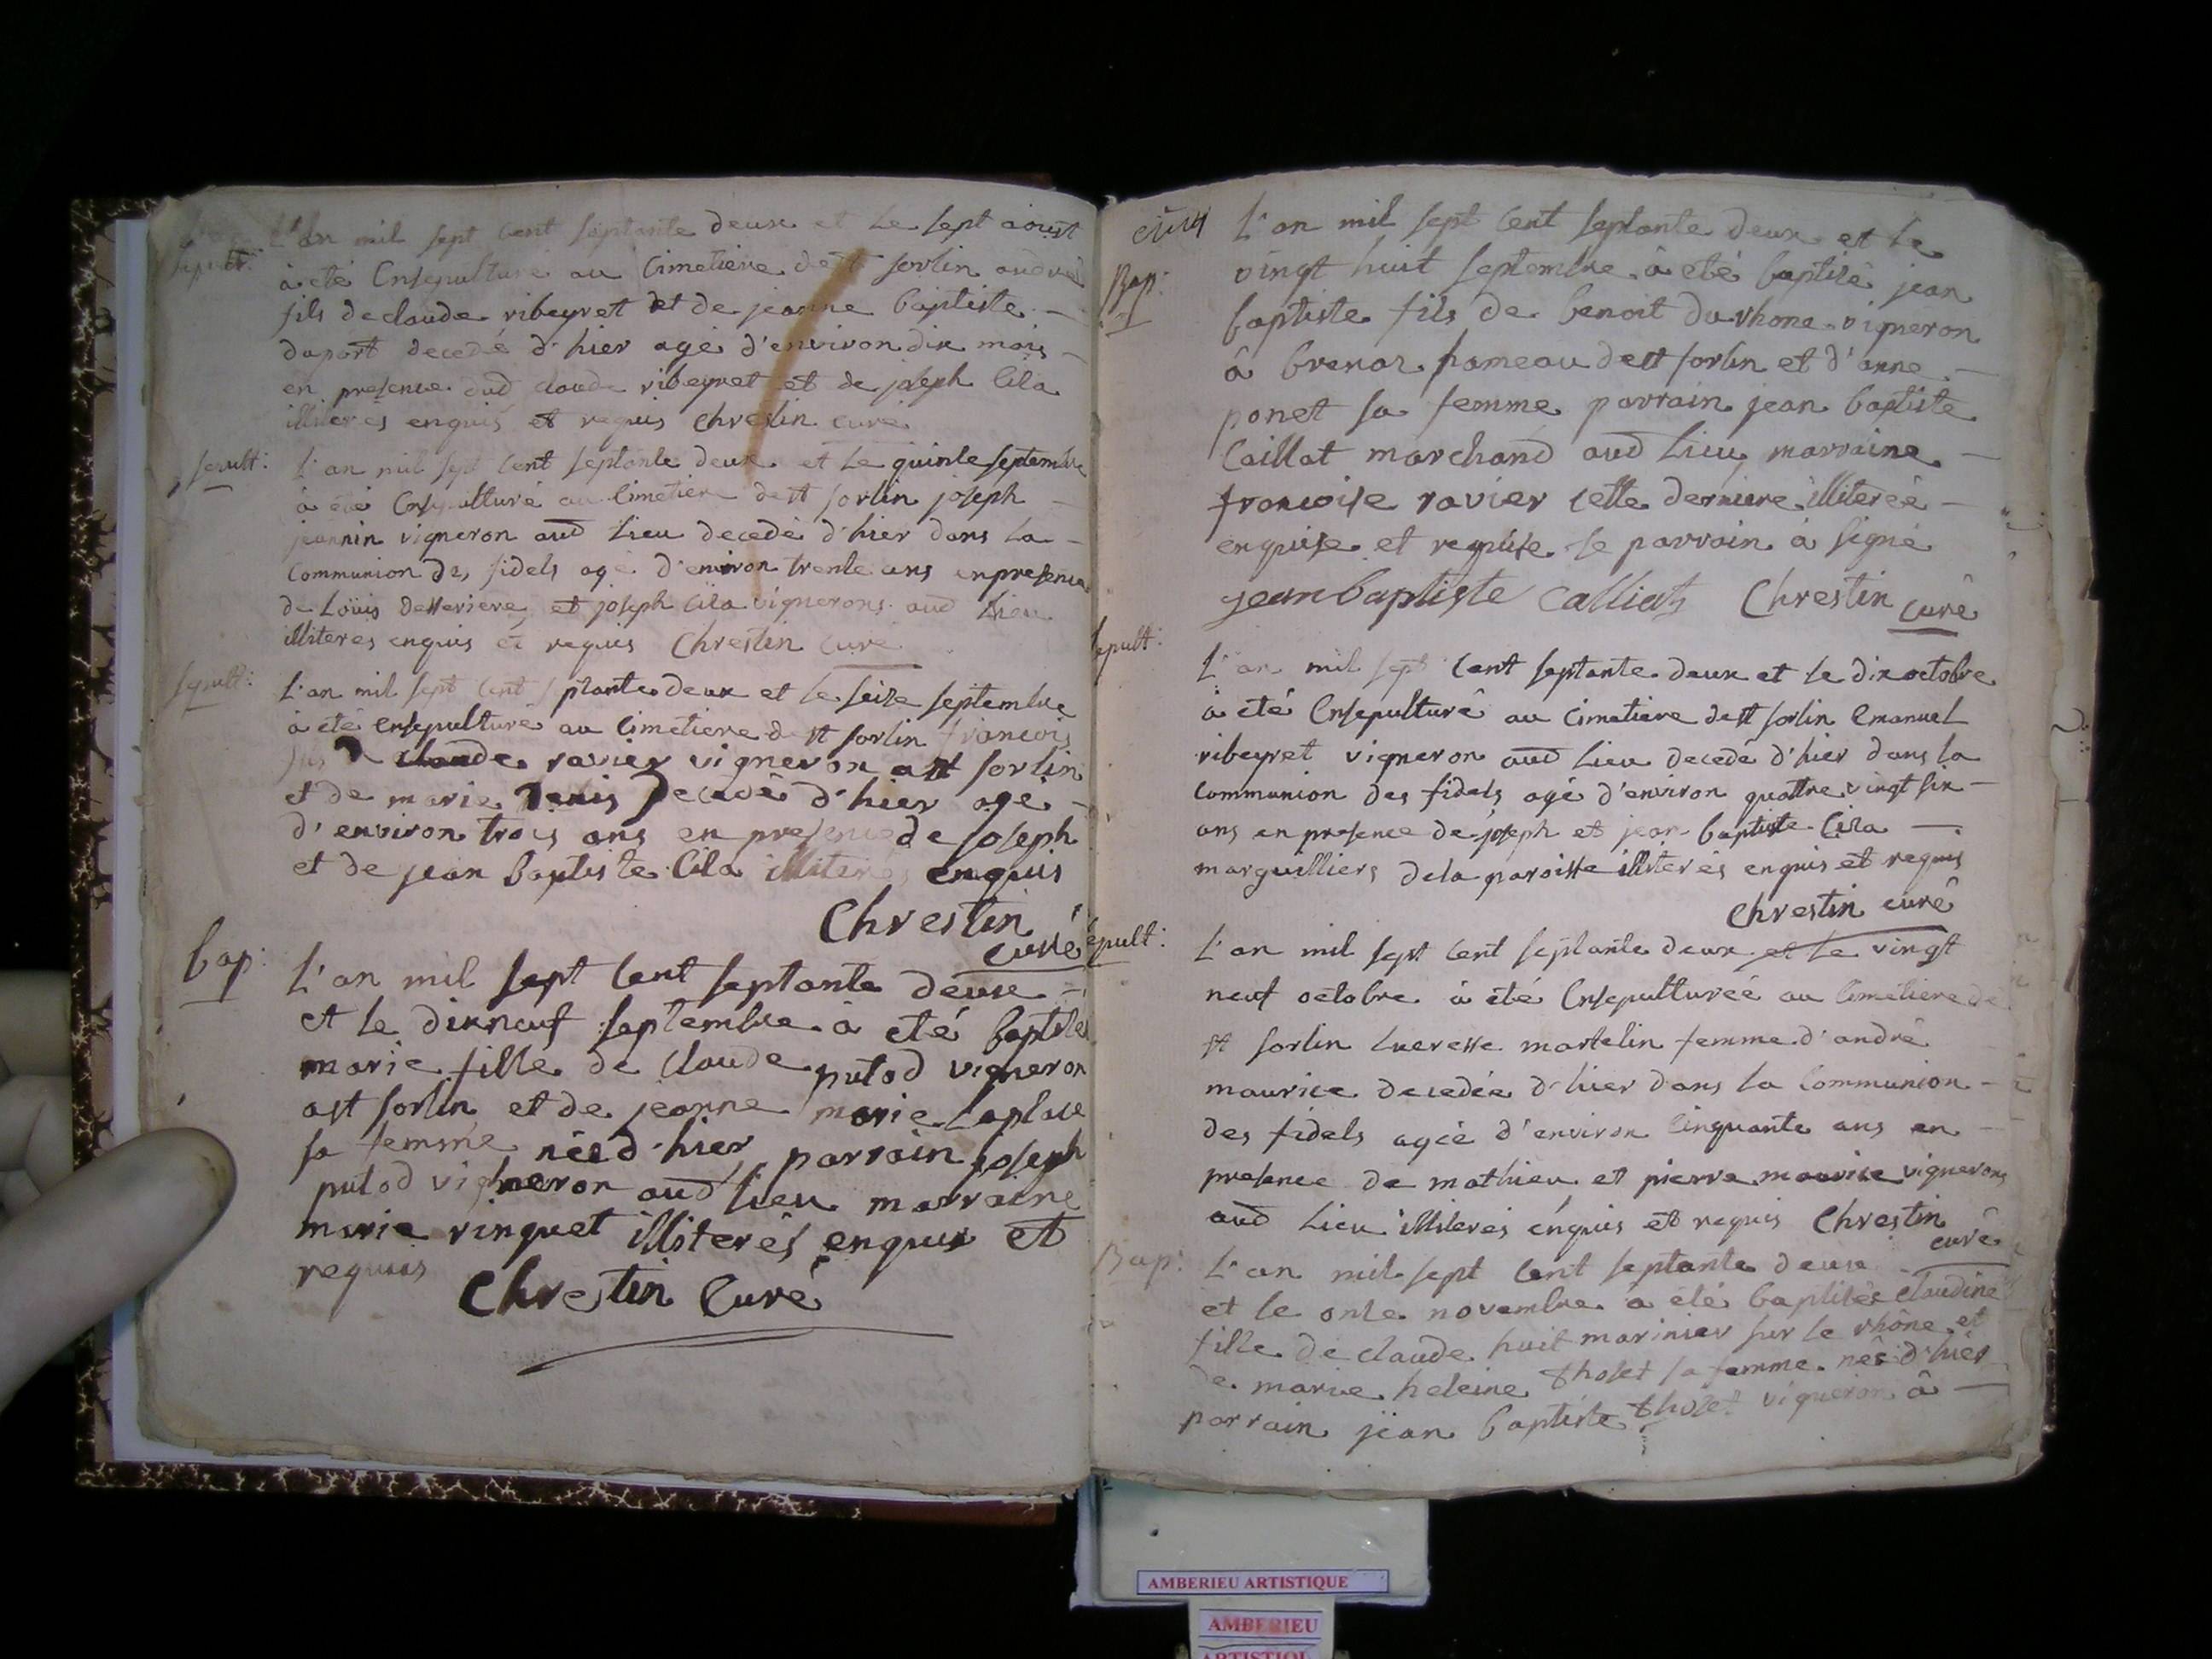 Sepult:
L'an mil sept cent septante deux et le sept aoust
à eté Ensepulturé au Cimetiere de st sorlin andré
fils de claude ribeyret et de jeanne baptiste
duport decedé d'hier agé d'environ dix mois
en presence dud claude ribeyret et de joseph Cila
illiterés enquis et requis Chrestin curé
sepult:
L'an mil sept Cent septante deux et Le quinse septembre
à été Ensepulturé au Cimetiere de st sorlin joseph
jeannin vigneron aud Lieu decedé d'hier dans La
Communion des fidels agé d'environ trente ans en presence
de Loüis desseriere et joseph Cila vignerons aud Lieu
illiteres enquis et requis Chrestin curé
sepult:
L'an mil sept Cent septante deux et le seise septembre
à été ensepulturé au Cimetiere de st sorlin francois
fils de claude ravier vigneron a st sorlin
et de marie Denis Decedé d'hier agé
d'environ trois ans en presence de joseph
et de jean Baptiste Cila illiterés enquis
Chrestin
curé
bap:
L'an mil sept Cent septante deux
et le dixneuf septembre à eté baptisée
marie fille de Claude putod vigneron
a st sorlin et de jeanne marie Laplace
sa femme née d'hier parrain joseph
putod vigneron aud lieu marraine
marie vinquet illiterés enquis et
requis
Chrestin Curé
Bap:
L'an mil sept Cent septante deux et le
vingt huit septembre à eté baptisé jean
baptiste fils de benoit durhone vigneron
à brenaz hameau de st sorlin et d'anne
ponet sa femme parrain jean baptiste
Caillat marchand aud Lieu marraine
francoise ravier cette derniere illiterée
enquise et requise le parrain à signé
jean baptiste Calliat Chrestin curé
sepult:
L'an mil sept Cent septante deux et le dix octobre
à été Ensepulturé au Cimetiere de st sorlin Emanuel
ribeyret vigneron aud Lieu decedé d'hier dans la
Communion des fidels agé d'environ quattre vingt six
ans en presence de joseph et jean baptiste Cila
marguilliers de la paroisse illiterés enquis et requis
Chrestin curé
sepult:
L'an mil sept Cent septante deux et Le vingt
neuf octobre à été Ensepulturéé au Cimetiere de
st sorlin Lucresse martelin femme d'andré
maurice decedée d'hier dans la Communion
des fidels agéé d'environ Cinquante ans en
presence de mathieu et pierre maurice vignerons
aud Lieu illiterés enquis et requis Chrestin
curé
Bap:
L'an mil sept Cent septante deux
et le onse novembre à été baptisée Claudine
fille de claude huit marinier sur le rhône et
de marie heleine tholet sa femme née d'hier
parrain jean baptiste tholet vigneron à
AMBERIEU ARTISTIQUE
AMBERIEU
ARTISTIQUE